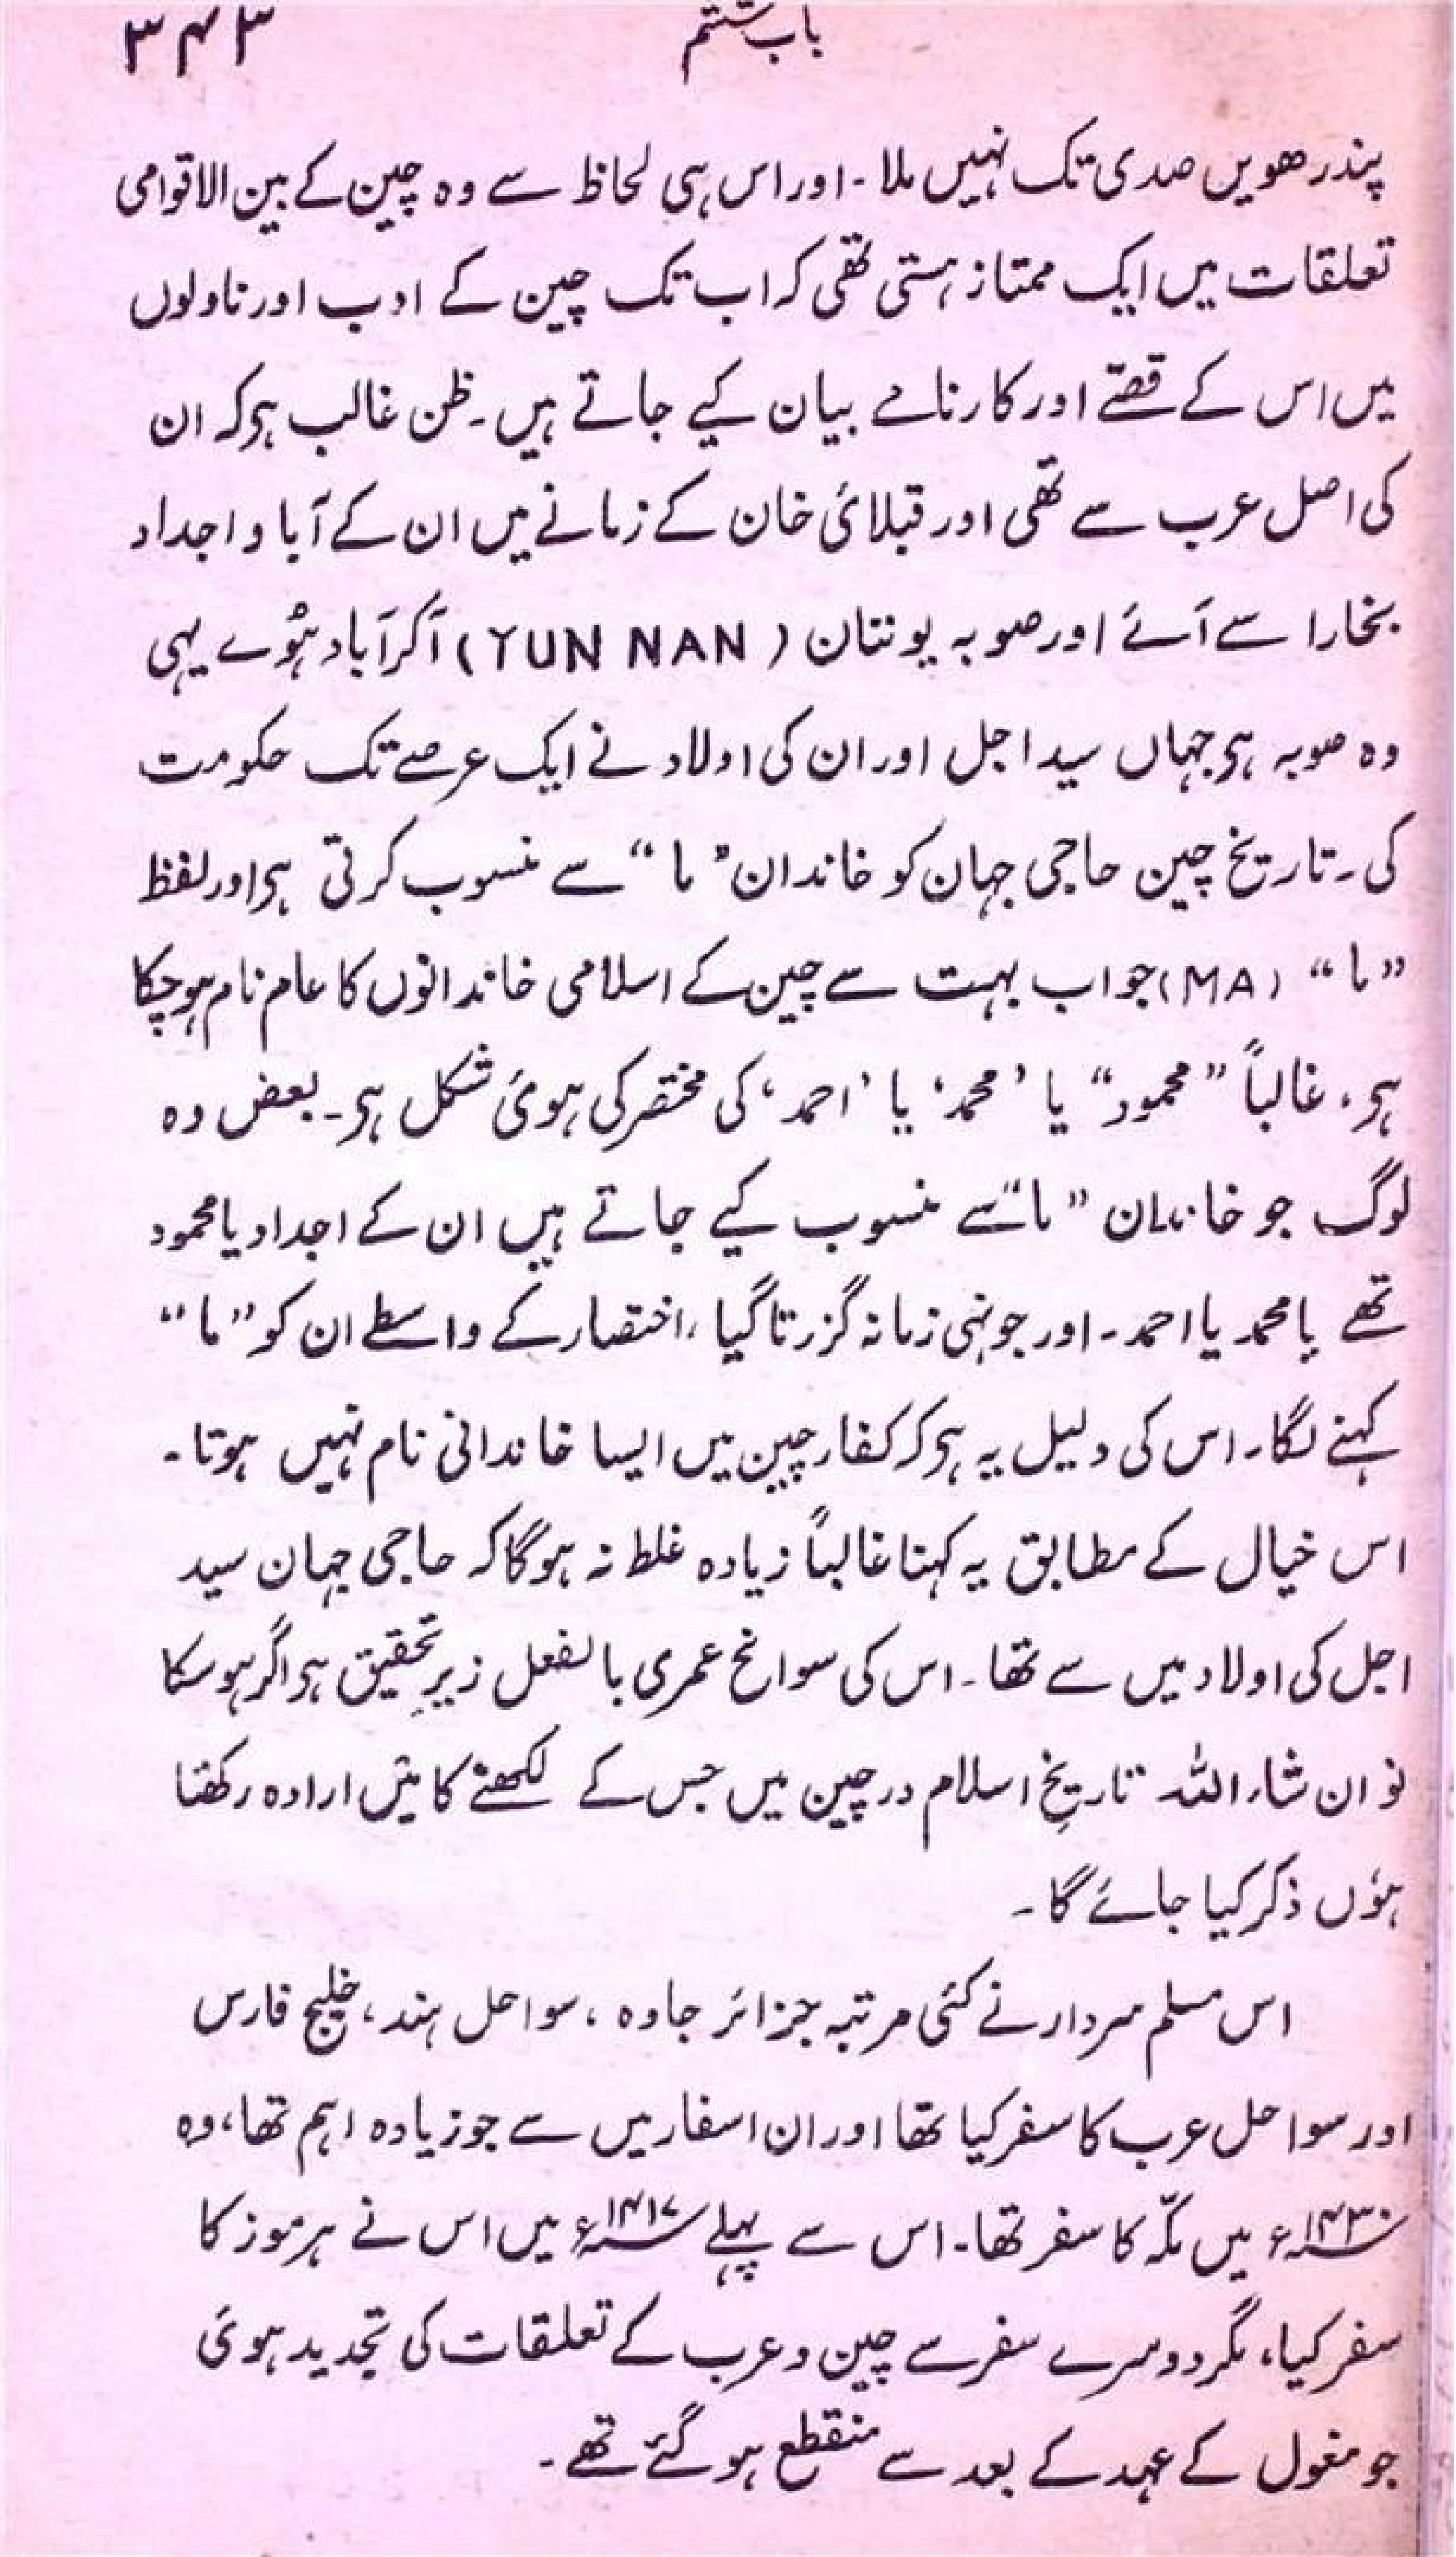 باب ششم
۳۴۳
پندرھویں صدی تک نہیں ملا۔ اور اس ہی لحاظ سے وہ چین کے بین الاقوامی
تعلقات میں ایک ممتاز ہستی تھی کہ اب تک چین کے ادب اور ناولوں
میں اس کے قصّے اور کارنامے بیان کیے جاتے ہیں۔ ظن غالب ہو کہ ان
کی اصل عرب سے تھی اور قبلائی خان کے زمانے میں ان کے آبا و اجداد
بخارا سے آئے اور صوبہ یوننان (YUN NAN) آکر آباد ہوئے یہی
وہ صوبہ ہو جہاں سید اجل اور ان کی اولاد نے ایک عرصے تک حکومت
کی۔ تاریخ چین حاجی جہان کو خاندان ”ما“ سے منسوب کرتی ہو اور لفظ
”ما“ (MA) جو اب بہت سے چین کے اسلامی خاندانوں کا عام نام ہو چکا
ہو، غالباً ”محمود“ یا ’محمد‘ یا ’احمد‘ کی مختصر کی ہوئی شکل ہو۔ بعض وہ
لوگ جو خاندان ”ما“ سے منسوب کیے جاتے ہیں ان کے اجداد یا محمود
تھے یا محمد یا احمد۔ اور جونہی زمانہ گزرتا گیا، اختصار کے واسطے ان کو ”ما“
کہنے لگا۔ اس کی دلیل یہ ہو کہ کفار چین میں ایسا خاندانی نام نہیں ہوتا۔
اس خیال کے مطابق یہ کہنا غالباً زیادہ غلط نہ ہوگا کہ حاجی جہان سید
اجل کی اولاد میں سے تھا۔ اس کی سوانح عمری بالفعل زیرِ تحقیق ہو اگر ہو سکا
تو ان شاء اللہ تاریخِ اسلام در چین میں جس کے لکھنے کا میں ارادہ رکھتا
ہوں ذکر کیا جائے گا۔
اس مسلم سردار نے کئی مرتبہ جزائر جاوہ، سواحل ہند، خلیج فارس
اور سواحل عرب کا سفر کیا تھا اور ان اسفار میں سے جو زیادہ اہم تھا، وہ
۱۴۳۰ء میں مکّہ کا سفر تھا۔ اس سے پہلے ۱۴۱۷ء میں اس نے ہرموز کا
سفر کیا، مگر دوسرے سفر سے چین و عرب کے تعلقات کی تجدید ہوئی
جو مغول کے عہد کے بعد سے منقطع ہو گئے تھے۔